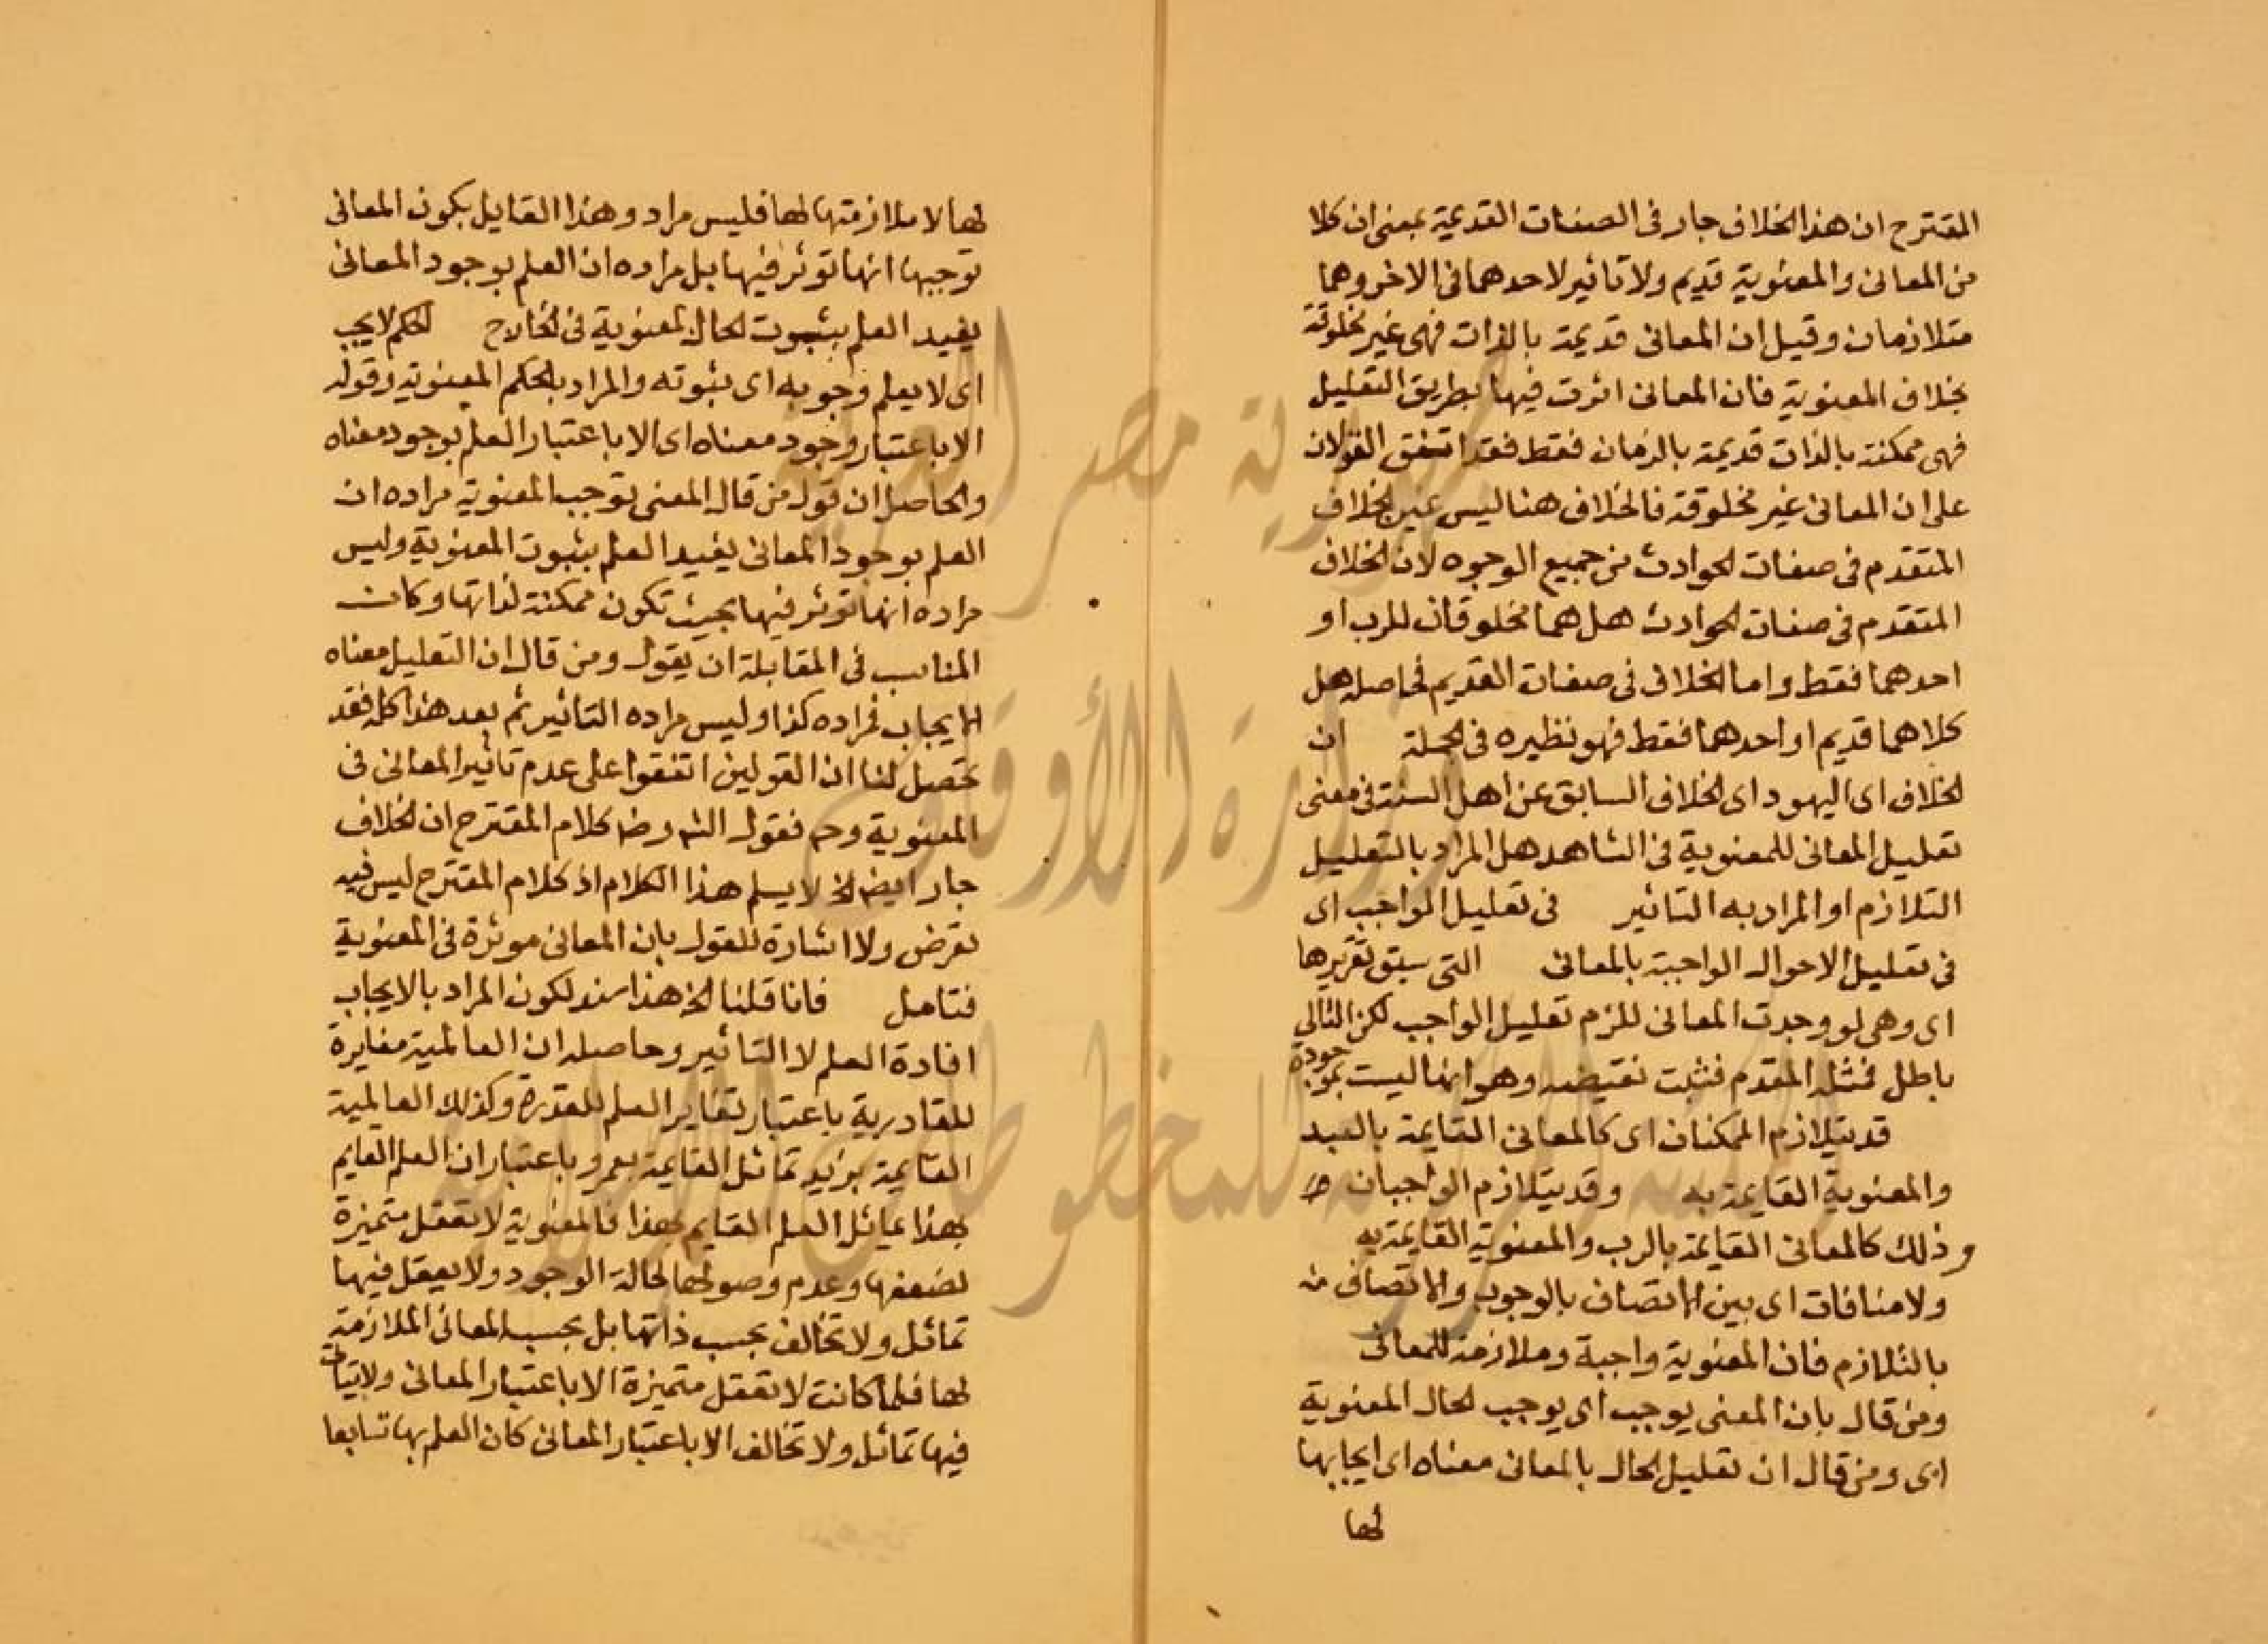 المقترح ان هذا الخلاف جار فى الصفات القديمة بمعنى ان كلا
من المعانى والمعنوية قديم ولا تاثير لاحدهما فى الاخر وهما
متلازمان وقيل ان المعانى قديمة بالذات فهى غير مخلوقة
بخلاف المعنوية فان المعانى اثرت فيها بطريق التعليل
فهى ممكنة بالذات قديمة بالزمان فقط فقد اتفق القولان
على ان المعانى غير مخلوقة فالخلاف هنا ليس عين الخلاف
المتقدم فى صفات الحوادث من جميع الوجوه لان الخلاف
المتقدم فى صفات الحوادث هل هما مخلوقان للرب او
احدهما فقط واما الخلاف فى صفات القديم فحاصله هل
كلاهما قديم او احدهما فقط فهو نظيره فى الجملة ان
الخلاف اى اليهود اى الخلاف السابق عن اهل السنة فى معنى
تعليل المعانى للمعنوية فى الشاهد هل المراد بالتعليل
التلازم او المراد به التاثير فى تعليل الواجب اى
فى تعليل الاحوال الواجبة بالمعانى التى سبق تقريرها
اى وهى لو وجدت المعانى للزم تعليل الواجب لكن التالى
باطل فمثله المقدم فثبت نقيضه وهو انها ليست بموجودة
قد يتلازم الممكنان اى كالمعانى القايمة بالعبد
والمعنوية القايمة به وقد يتلازم الواجبان
وذلك كالمعانى القايمة بالرب والمعنوية القايمة به
ولا منافات اى بين الاتصاف بالوجوب والاتصاف
بالتلازم فان المعنوية واجبة وملازمة للمعانى
ومن قال بان المعنى يوجب اى يوجب الحال المعنوية
اى ومن قال ان تعليل الحال بالمعانى معناه اى ايجابها
لها
لها لا ملازمتها لها فليس مراد وهذا القايل بكون المعانى
توجبها انها توثر فيها بل مراده ان العلم بوجود المعانى
يفيد العلم بثبوت الحال المعنوية فى الخارج الحكم لا يجب
اى لا يعلم وجوبه اى ثبوته والمراد بالحكم المعنوية وقوله
الا باعتبار وجود معناه اى الا باعتبار العلم بوجود معناه
والحاصل ان قول من قال المعنى توجب المعنوية مراده ان
العلم بوجود المعانى يفيد العلم بثبوت المعنوية وليس
مراده انها توثر فيها بحيث تكون ممكنة لذاتها وكان
المناسب فى المقابلة ان يقول ومن قال ان التعليل معناه
الايجاب فمراده كذا وليس مراده التاثير ثم بعد هذا كله فقد
تحصل لنا ان القولين اتفقوا على عدم تاثير المعانى فى
المعنوية وح فقول الش وض كلام المقترح ان الخلاف
جار ايض الخ لا يسلم هذا الكلام اذ كلام المقترح ليس فيه
تعرض ولا اشارة للقول بان المعانى موثرة فى المعنوية
فتامل فانا قلنا الخ هذا سند لكون المراد بالايجاب
افادة العلم لا التاثير وحاصله ان العالمية مغايرة
للقادرية باعتبار تغاير العلم للقدرة وكذلك العالمية
القايمة بزيد تماثل القايمة بعمرو باعتبار ان العلم القايم
بهذا يماثل العلم القايم بهذا فالمعنوية لا تعقل متميزة
لضعفها وعدم وصولها لحالة الوجود ولا يعقل فيها
تماثل ولا تخالف بحسب ذاتها بل بحسب المعانى الملازمة
لها فلما كانت لا تعقل متميزة الا باعتبار المعانى ولا يتات
فيها تماثل ولا تخالف الا باعتبار المعانى كان العلم بها تابعا